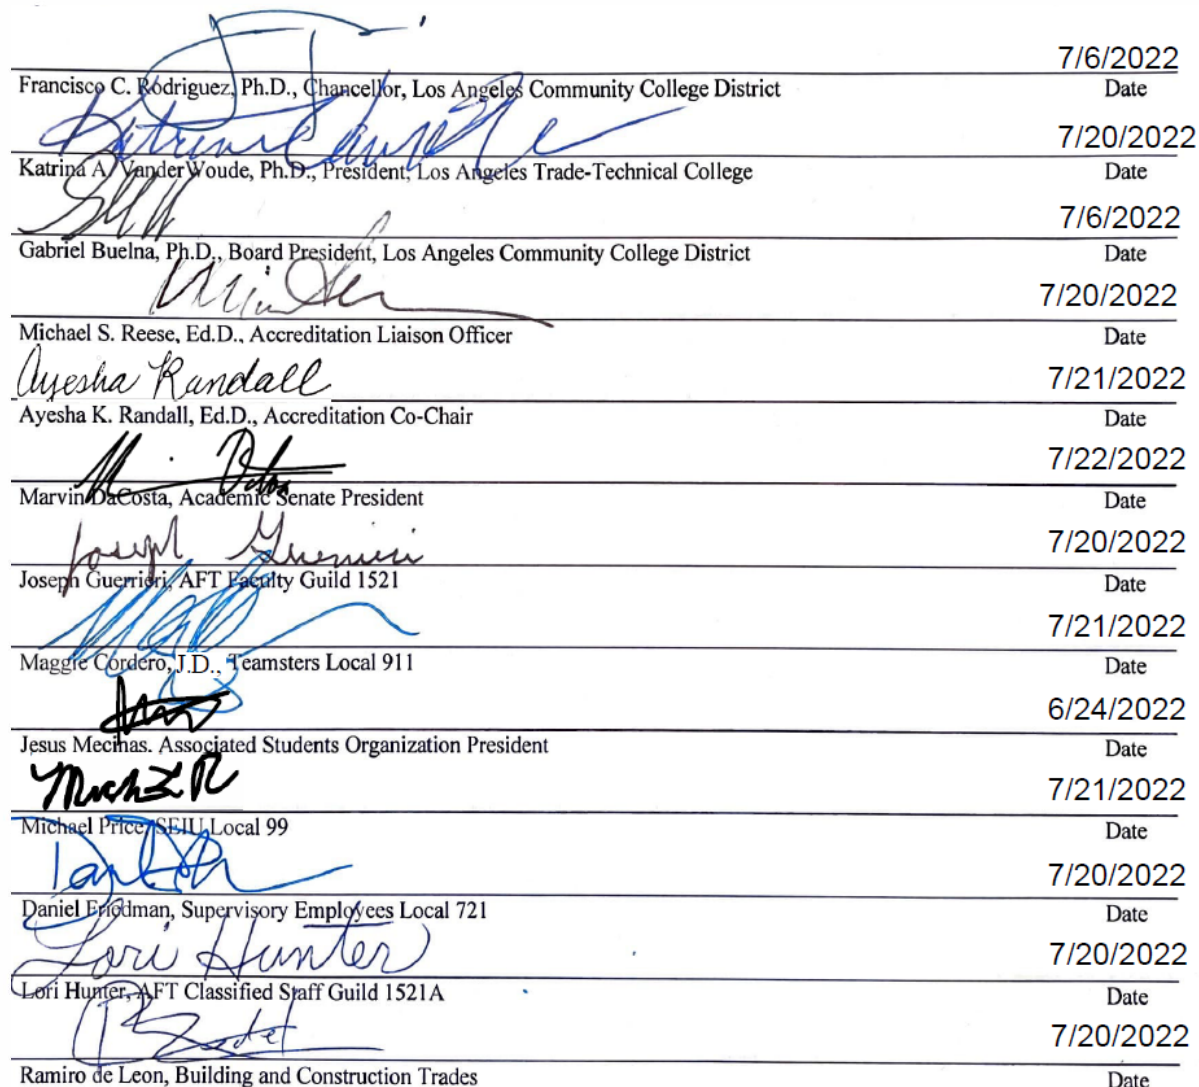 7/6/2022
Francisco C. Rodriguez, Ph.D., Chancellor, Los Angeles Community College District Date
7/20/2022
Katrina A. VanderWoude, Ph.D., President, Los Angeles Trade-Technical College Date
7/6/2022
Gabriel Buelna, Ph.D., Board President, Los Angeles Community College District Date
7/20/2022
Michael S. Reese, Ed.D., Accreditation Liaison Officer Date
Ayesha Randall 7/21/2022
Ayesha K. Randall, Ed.D., Accreditation Co-Chair Date
7/22/2022
Marvin DaCosta, Academic Senate President Date
Joseph Guerrieri 7/20/2022
Joseph Guerrieri, AFT Faculty Guild 1521 Date
7/21/2022
Maggie Cordero, J.D., Teamsters Local 911 Date
6/24/2022
Jesus Mecinas. Associated Students Organization President Date
7/21/2022
Michael Price, SEIU Local 99 Date
7/20/2022
Daniel Friedman, Supervisory Employees Local 721 Date
Lori Hunter 7/20/2022
Lori Hunter, AFT Classified Staff Guild 1521A Date
7/20/2022
Ramiro de Leon, Building and Construction Trades Date